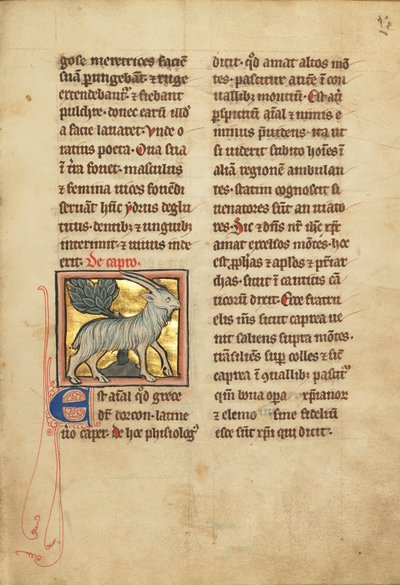 gose meretrices faciē
suā perungebant ⁊ ruge
extendebant᷑ ⁊ fiebant
pulchre donec carſi illud
a facie lauaret. Vnde o
ratius poeta. Oua sua
⁊ t̄ra fouet. masculus
⁊ femina uices fouēdi
seruant h̄nc ydrus deglu
titus. dentib; ⁊ unguib;
interimit ⁊ uiuus inde
exit. De capro.
Est aīal qd̄ grece
dr̄ dorcon. latine
u̅o caper. de hoc phisiologꝰ
dicit. qd̄ amat altos mō
tes. pascitur aut̄e ī con
uallib; montiū. Est aūt
pspitcū aīal ⁊ nimis e
minus p̄uidens. ita ut
si uiderit subito hōies ī
aliā regionē ambulan
tes. statim cognoscit si
uenatores sūt an uiato
res. Sic ⁊ dn̄s nr̄ ih̄c xp̄c
amat excelsos mōtes. hoc
est. pphās ⁊ apl̄os ⁊ pr̄iar
chas. sicut ī canticis cā
ticorū dicit. Ecce fratru
elis mīs sicut caprea ue
nit saliens supra mōtes.
trāsiliēs sup colles ⁊ sic̄
caprea ī quallib; pascit᷑
qm̄ bona opa xp̄ianor
⁊ elemo sine fideliū
esce sūt xp̄i qui dicit.